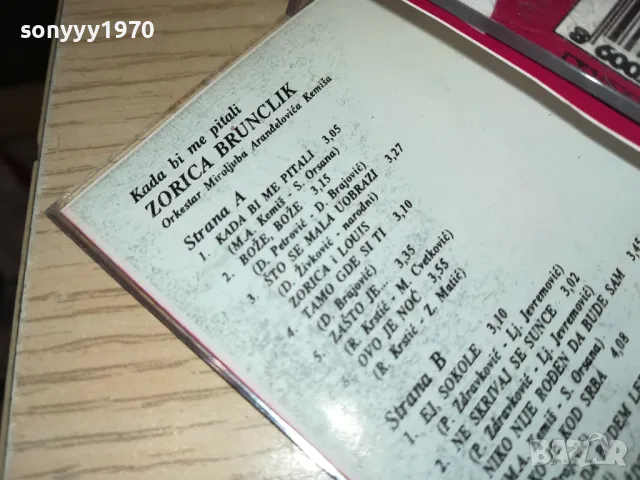 sonyyy1970
8 600
Kada bi me pitali
ZORICA BRUNCLIK
Orkestar Miroljuba Aranđelovića Kemiša
Strana A
1. KADA BI ME PITALI 3,05
(M.A. Kemiš - S. Orsana)
2. BOŽE, BOŽE 3,15
(D. Petrović - D. Brajović)
3. ŠTO SE MALA UOBRAZI 3,27
(D. Živković - narodni)
ZORICA i LOUIS
4. TAMO GDE SI TI 3,10
(D. Brajović)
5. ZAŠTO JE... 3,35
(R. Krstić - M. Cvetković)
6. OVO JE NOĆ 3,55
(R. Krstić - Z. Matić)
Strana B
1. EJ, SOKOLE 3,10
(P. Zdravković - Lj. Jevremović)
2. NE SKRIVAJ SE SUNCE 3,02
(P. Zdravković - Lj. Jevremović)
NIKO NIJE ROĐEN DA BUDE SAM
Kemiš - S. Orsana)
KOD SRBA 4,08
BAZAR